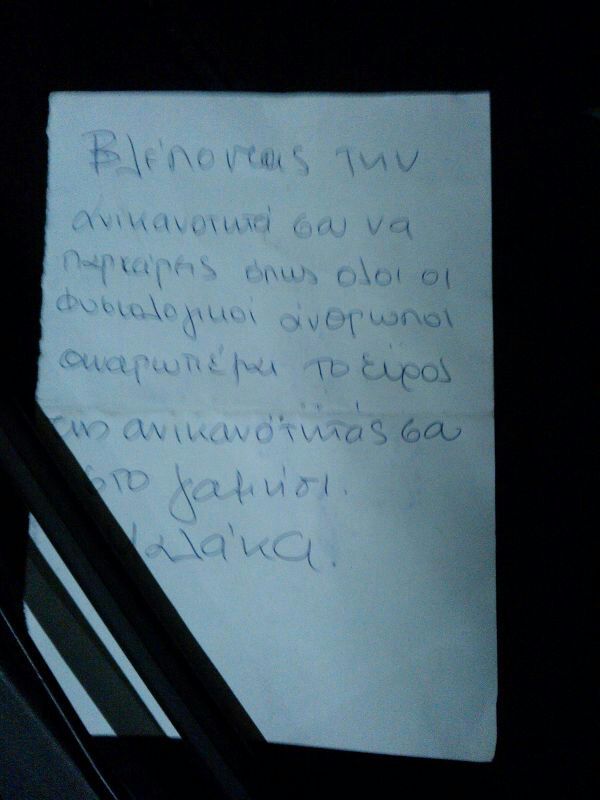 Βλέποντας την
ανικανοτητά σου να
παρκάρεις όπως ολοι οι
φυσιολογικοί άνθρωποι
αναρωτιέμαι το εύρος
της ανικανότητάς σου
στο γαμήσι.
Μαλάκα.